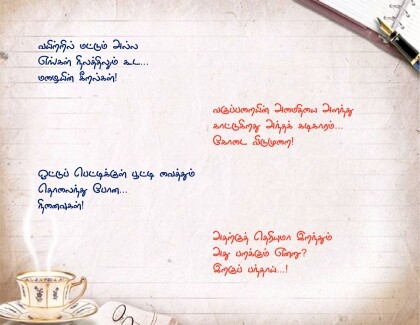 வயிற்றில் மட்டும் அல்ல
எங்கள் நிலத்திலும் கூட...
மழையின் கீறல்கள்!
வகுப்பறையின் அமைதியை அளந்து
காட்டுகிறது அந்தக் கடிகாரம்...
கோடை விடுமுறை!
ஓட்டுப் பெட்டிக்குள் பூட்டி வைத்தும்
தொலைந்து போன...
நினைவுகள்!
அதற்குத் தெரியுமா இறந்தும்
அது பறக்கும் என்று?
இறகுப் பந்தாய்...!